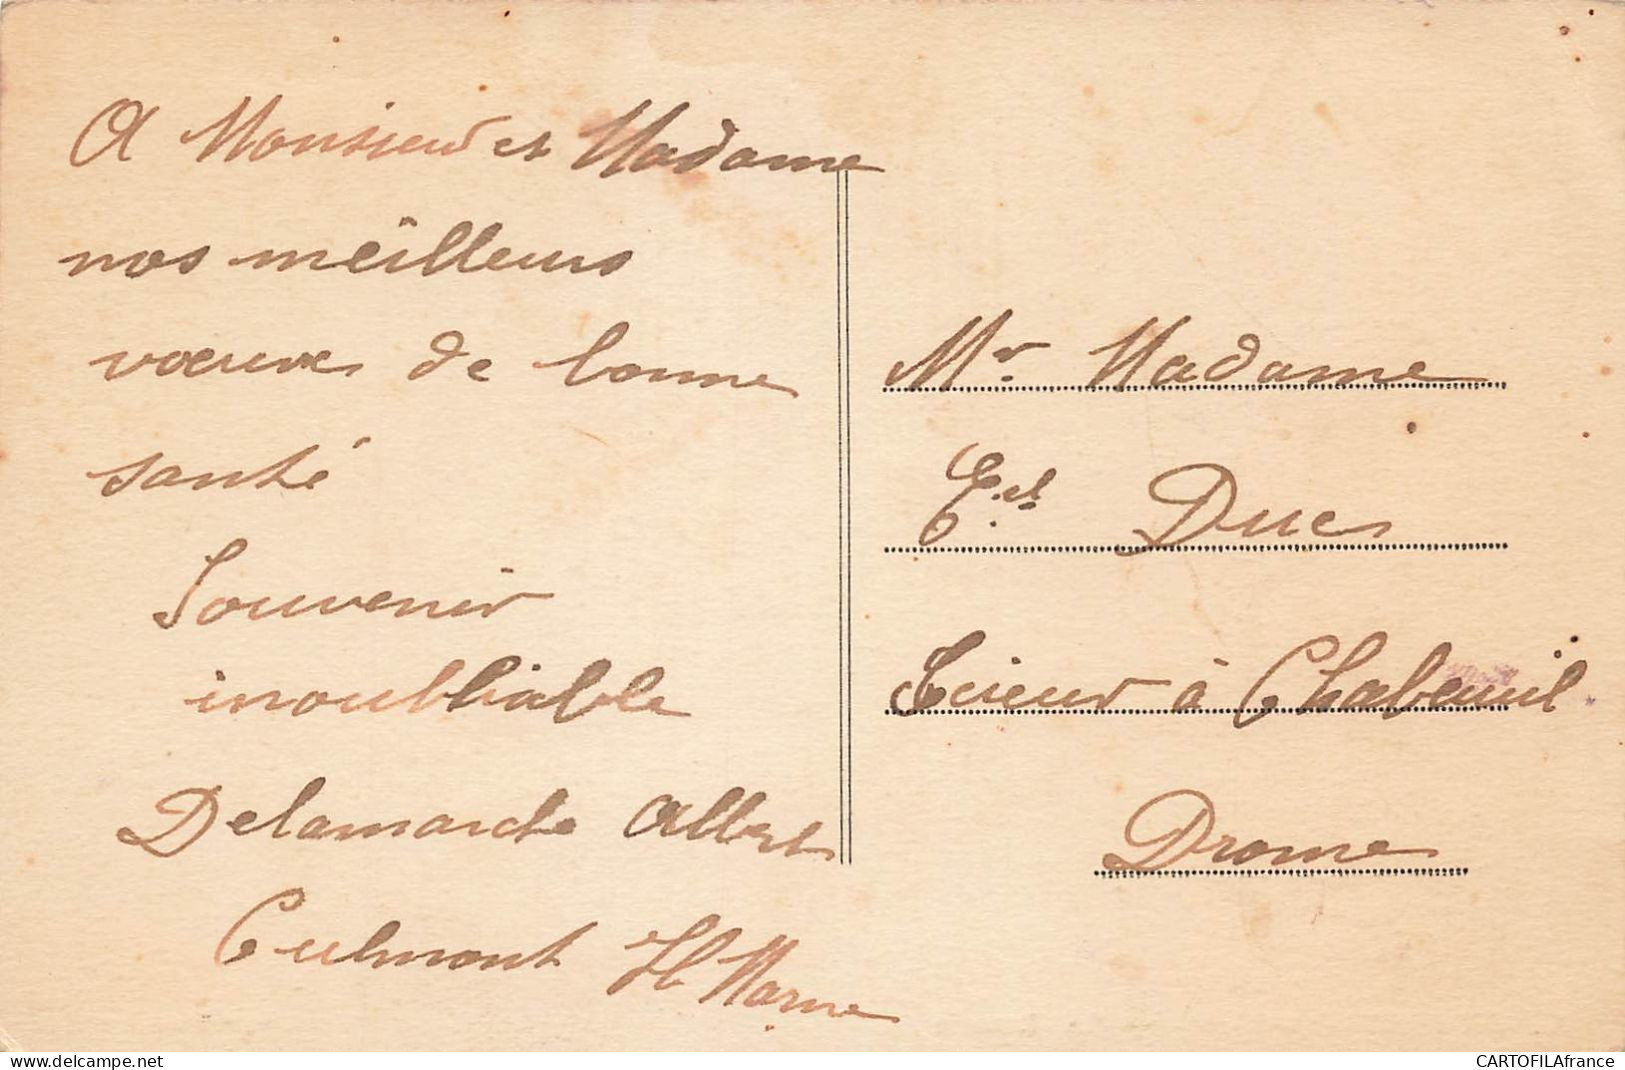 A Monsieur et Madame
nos meilleurs
voeux de bonne
santé
Souvenir
inoubliable
Delamarche Albert
Culmont Hte Marne
Mr Madame
Duc
à Chabeuil
Drome
www.delcampe.net
CARTOFILAfrance